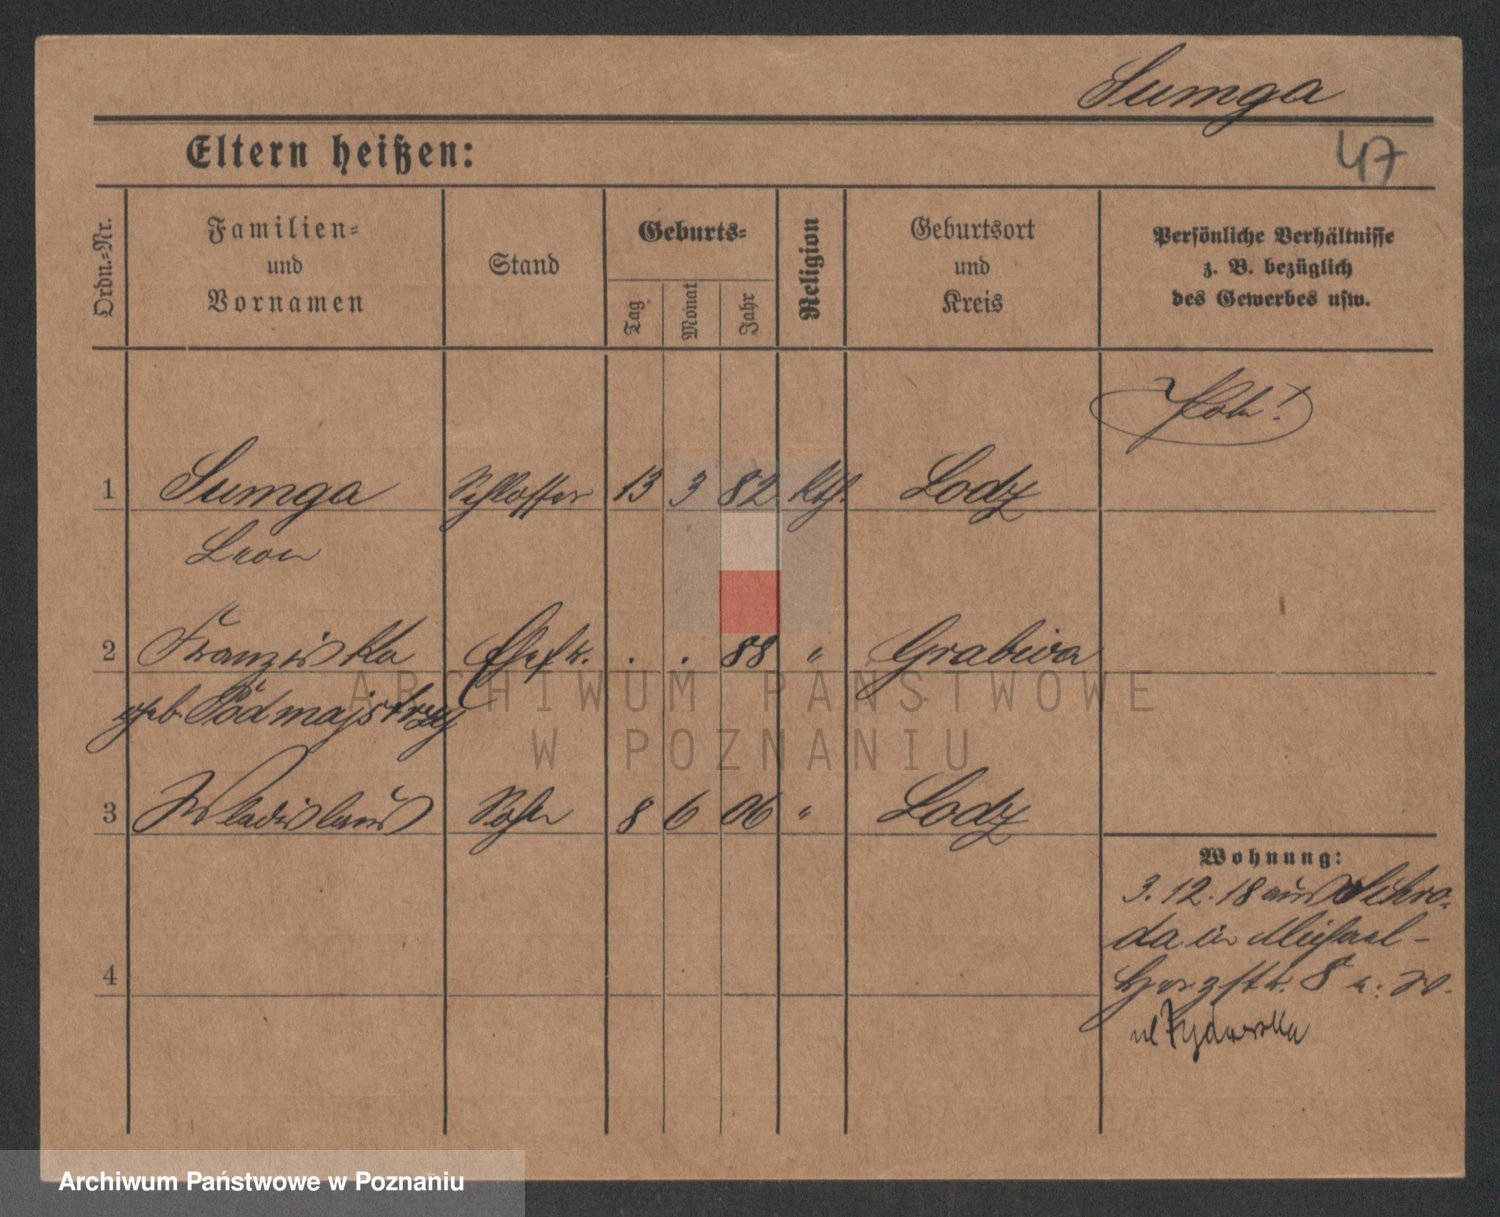 Sumga
47
Eltern heißen:
Ordn.-Nr.
Familien-
und
Vornamen
Stand
Geburts-
Tag
Monat
Jahr
Religion
Geburtsort
und
Kreis
Persönliche Verhältnisse
z. B. bezüglich
des Gewerbes usw.
1 Sumga Schlosser 13 3 82 kth. Lodz
Leon
2 Franziska Ehefr. . . 88 " Grabiva
geb. Podmajstrzy
3 Wladislaus Sohn 8 6 06 " Lodz
4
Wohnung:
3.12.18 aus Schro-
da in Michael-
Herzstr. 8 b. W.
ul Żydowska
ARCHIWUM PAŃSTWOWE
W POZNANIU
Archiwum Państwowe w Poznaniu